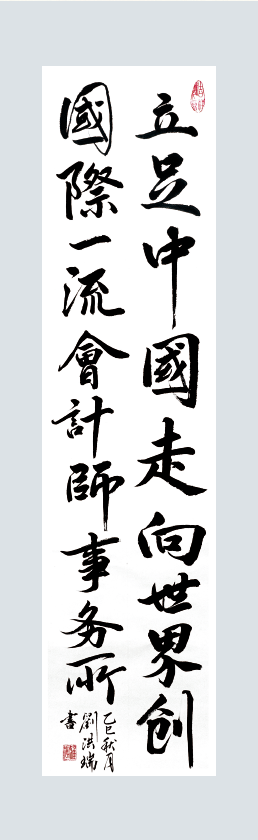 立足中國走向世界创
國際一流會計師事务所
乙巳秋月
劉洪瑞
書